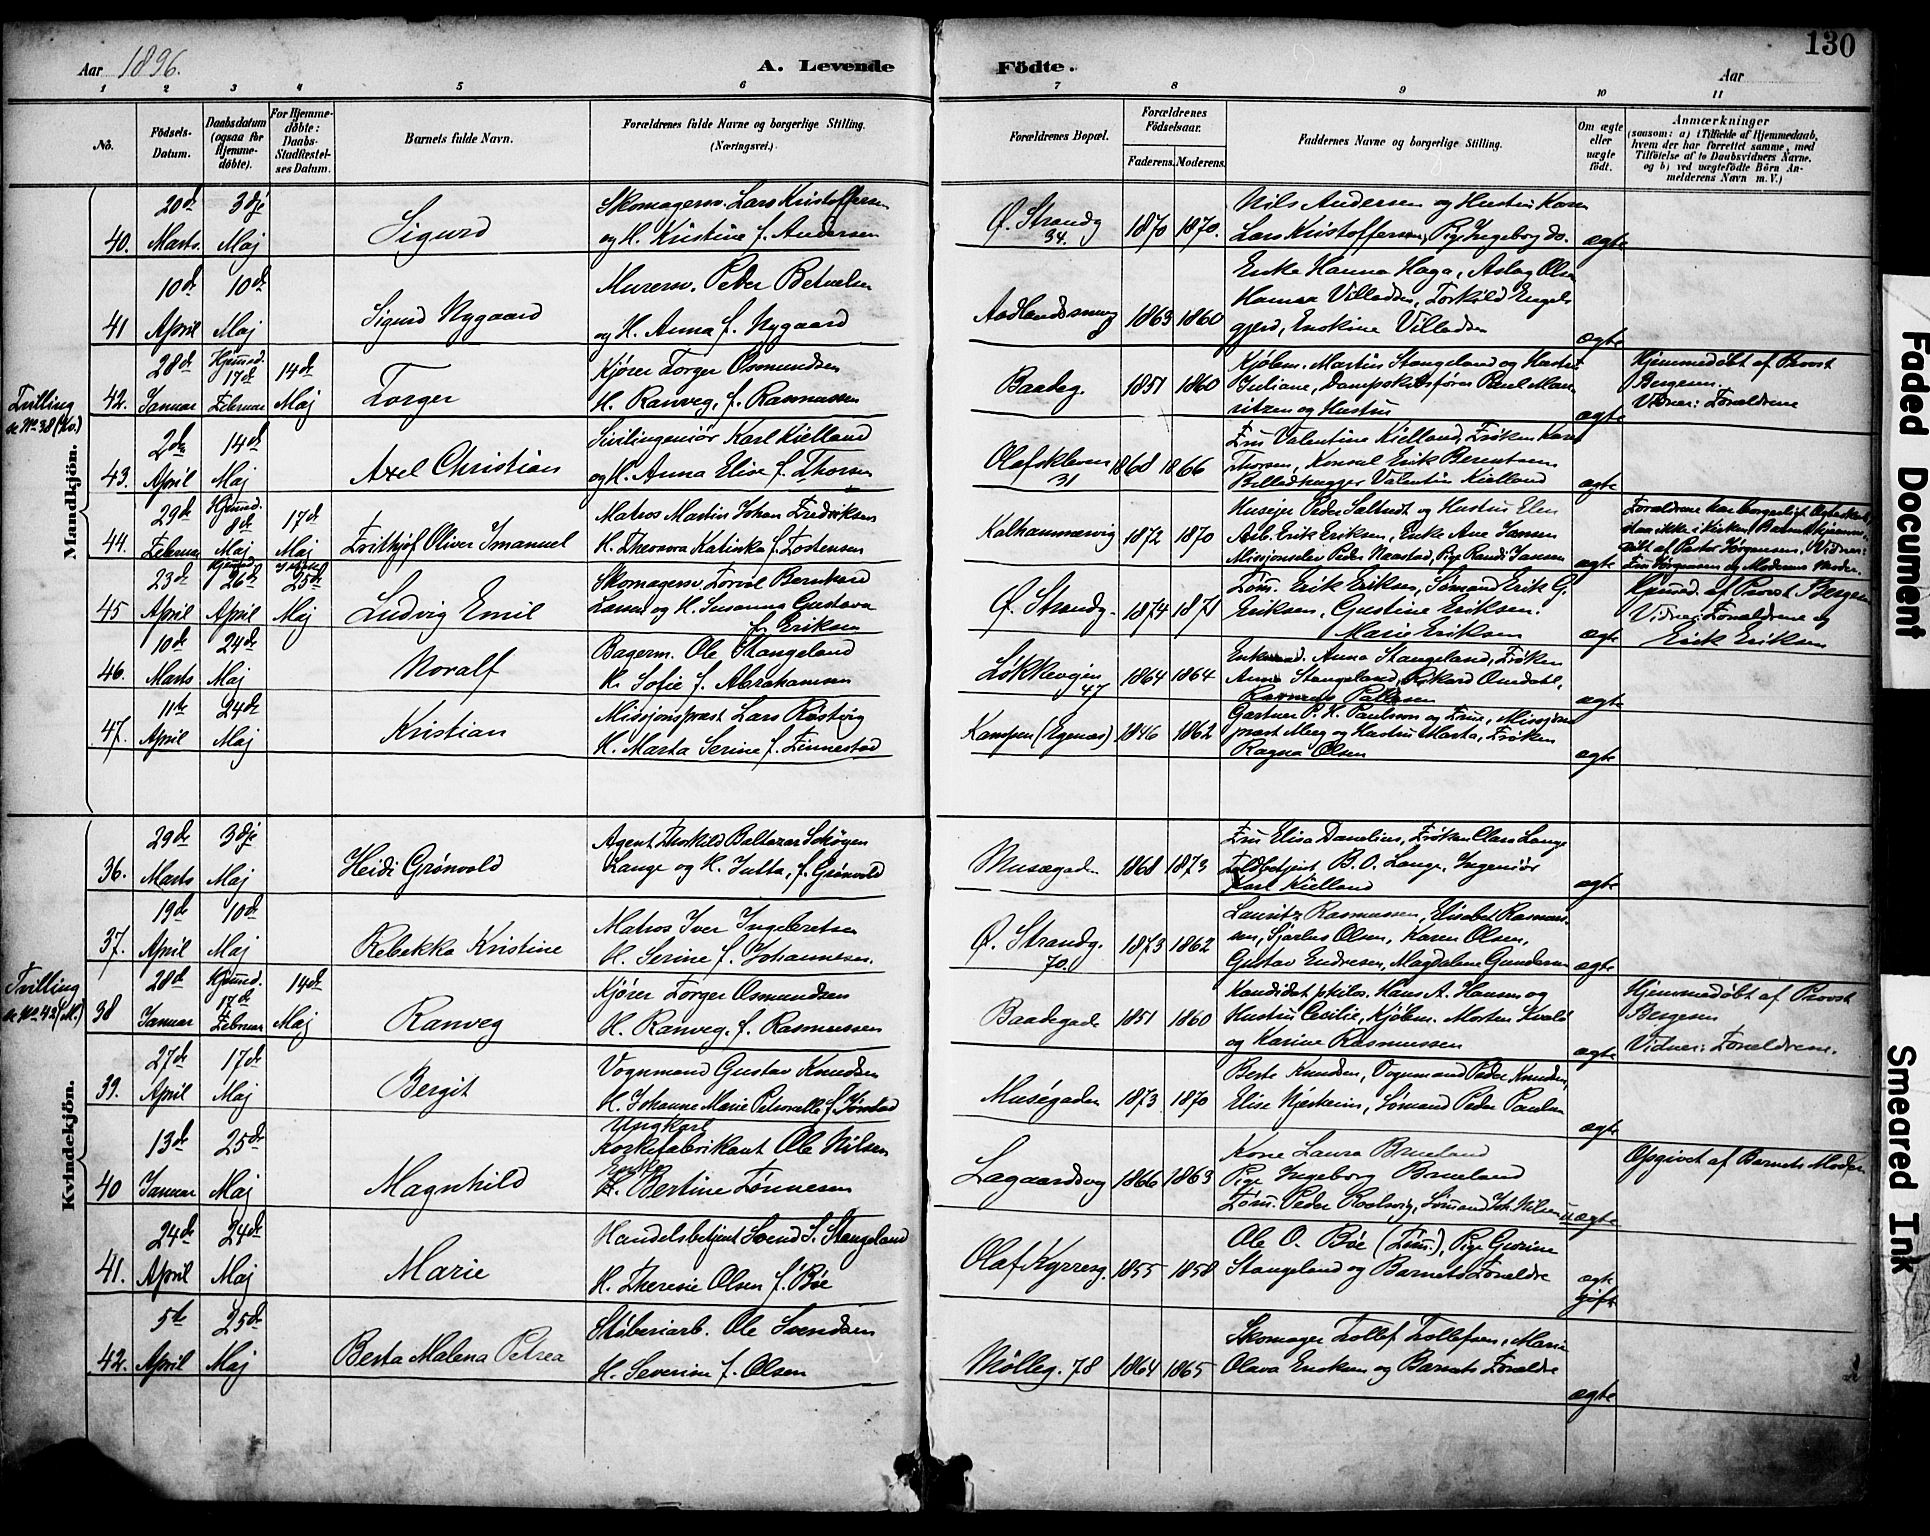 130
Aar 1896.
A. Levende
Födte.
Aar
1 2 3 4 5 6 7 8 9 10 11
No.
Födsels-Datum.
Daabsdatum (ogsaa for Hjemme-döbte).
For Hjemme-döbte: Daabs-Stadfæstel-ses Datum.
Barnets fulde Navn.
Forældrenes fulde Navne og borgerlige Stilling.
(Næringsvei.)
Forældrenes Bopæl.
Forældrenes Födselsaar.
Faderens. Moderens.
Faddernes Navne og borgerlig Stilling.
Om ægte eller uægte födt.
Anmærkninger
(saasom: a) i Tilfælde af Hjemmedaab,
hvem der har forrettet samme, med
Tilföielse af to Daabsvidners Navne,
og b) ved uægtefödte Börn An-
melderens Navn m. V.)
Mandkjön.
40. 20de Marts 3dje Maj Sigurd
Skomagersv. Lars Kristoffersen
og H. Kristine f. Andersen
Ø. Strandg 34. 1870 1870.
Nils Andersen og Hustru Karen
Lars Kristoffersen, Pige Ingeborg do.
ægte
41 10de April 10de Maj Sigurd Nygaard
Murersv. Peder Betuelsen
og H. Anna f. Nygaard
Aadlandssmug 1863 1860
Enke Hanna Haga, Aslag Olsen
Hansa Villadsen, Torkild Engels
gjerd, Enokine Villadsen
ægte
Tvilling
se No. 38 (Kv.)
42. 28de Januar Hjemmed. 17de Februar 14de Maj Torger
Kjører Torger Osmundsen
H. Ranveg, f. Rasmussen
Baadeg. 1851 1860
Kjøbm. Martin Stangeland og Hustru
Juliane, Dampskibsfører Berel Mau
ritzen og Hustru
ægte
Hjemmedøbt af Provst
Bergesen.
Vidner: Forældrene
43. 2den April 14de Maj Axel Christian
Sivilingeniør Karl Kielland
og H. Anna Elise f. Thorsen
Olafskleven 31 1868 1866
Fru Valentine Kielland, Frøken Karen
Thorsen, Konsul Erik Berentsen
Billedhugger Valentin Kielland
ægte
44. 29de Februar Hjemmed. 8de Maj 17de Maj Frithjof Oliver Imanuel
Matros Martin Johan Fredriksen
H. Theodora Katinka f. Torstensen
Kalhammervig 1872 1870
Husejer Peder Saltredt og Hustru Elen
Arb. Erik Eriksen, Enke Ane Jansen
Missjonselev Peder Naastad, Pige Randi Jansen
ægte
45 23de April Hjemmed. 26de April 25de Maj Ludvig Emil
Skomagersv. Torvil Bernhard
Larsen og H. Susanna Gustava
f. Eriksen
Ø. Strandg. 1874 1871
Tøm. Erik Eriksen, Sømand Erik G.
Eriksen, Gustine Eriksen.
Marie Eriksen
ægte
Hjemmed. af Provst Bergesen
Vidner: Forældrene og
Erick Eriksen
46. 10de Marts 24de Maj Noralf
Bagerm. Ole Stangeland
H. Sofie f. Abrahamsen
Løkkevejen 47 1864 1864
Anna Stangeland, Frøken
Anna Stangeland, Rikard Omdahl,
ægte
47. 11te April 24de Maj Kristian
Missjonsprest Lars Røstvig
H. Marta Serine f. Finnestad
Kampen (Egenæs) 1846 1862
Gartner P. H. Paulsson og Frue, Missjons
prest Meeg og Hustru Marta, Frøken
Ragna Olsen
ægte
Kvindekjön.
36. 29de Marts 3dje Maj Heidi Grønvold
Agent Thorkild Baltazar Schøyen
Lange og H. Jutta, f. Grønvold
Musægaden 1868 1873
Fru Elisa Danelius, Frøken Clara Lange
Toldbetjent B. O. Lange, Ingeniør
Karl Kielland
ægte
37. 19de April 10de Maj Rebekka Kristine
Matros Iver Ingebretsen
H. Serine f. Johannesen.
Ø. Strandg. 70. 1873 1862
Lauritz Rasmussen, Elisabet Rasmus-
sen, Sjarlus Olsen, Karen Olsen,
Gustav Endresen, Magdalene Gundersen
ægte
Tvilling
se No. 42 (M.)
38 28de Januar Hjemmed. 17de Februar 14de Maj Ranveg
Kjører Torger Osmundsen
H. Ranveg, f. Rasmussen
Baadegade 1851 1860
Kandidat philos. Hans A. Hansen og
Hustru Cecilie, Kjøbm. Morten Kvale
og Karine Rasmussen
ægte
Hjemmedøbt af Provst
Bergesen
Vidner: Forældrene.
39. 27de April 17de Maj Bergit
Vognmand Gustav Knudsen
H. Johanne Marie Petronelle f. Jørstad
Muségaden 1873 1870
Berte Knudsen, Vognmand Peder Knudsen,
Elise Njerheim, Sømand Peder Paulsen
ægte
40 13de Januar 25de Maj Magnhild
Ungkarl
Korkefabrikant Ole Nilsen
Enke
H. Bertine Tønnesen
Lagaardsvg 1866 1863
Kone Laura Brueland
Pige Ingeborg Brueland
Tøm. Peder Rodsvig, Sømand Joh. Nilsen
uægte
Opgivet af Barnets Moder
41. 24de April 24de Maj Marie
Handelsbetjent Svend S. Stangeland
H. Theresie Olsen f. Bøe
Olaf Kyrresg. 1855 1858
Ole O. Bøe (Tøm.), Pige Gurine
Stangeland og Barnets Forældre
ægte
gift
42. 5te April 25de Maj Berta Malena Petrea
Støberiarb. Ole Svendsen
H. Severine f. Olsen
Mølleg. 78 1864 1865
Skomager Tollef Tollefsen, Marie
Olava Enoksen og Barnets Forældre
ægte
Faded Document
Smeared Ink